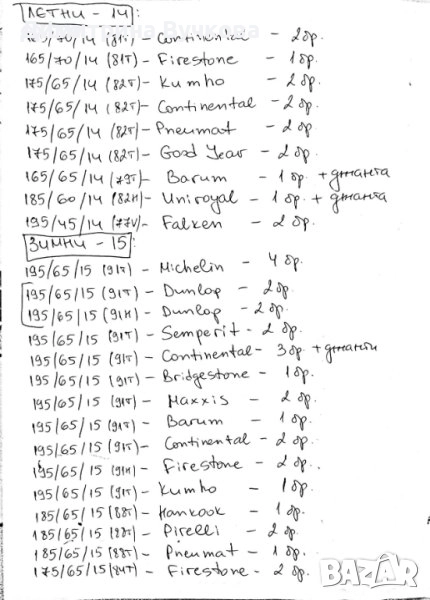 ЛЕТНИ - 14 :
165/70/14 (81т) - Continental - 2 бр.
165/70/14 (81т) - Firestone - 1 бр.
175/65/14 (82т) - Kumho - 2 бр.
175/65/14 (82т) - Continental - 2 бр.
175/65/14 (82т) - Pneumat - 2 бр.
175/65/14 (82т) - Good Year - 2 бр.
165/65/14 (79т) - Barum - 1 бр + джанта
185/60/14 (82H) - Uniroyal - 1 бр + джанта
195/45/14 (77V) - Falken - 2 бр.
ЗИМНИ - 15 :
195/65/15 (91т) - Michelin - 4 бр.
195/65/15 (91т) - Dunlop - 2 бр.
195/65/15 (91H) - Dunlop - 2 бр.
195/65/15 (91т) - Semperit - 2 бр.
195/65/15 (91т) - Continental - 3 бр + джанти
195/65/15 (91т) - Bridgestone - 1 бр.
195/65/15 (91т) - Maxxis - 2 бр.
195/65/15 (91т) - Barum - 1 бр.
195/65/15 (91т) - Continental - 2 бр.
195/65/15 (91H) - Firestone - 2 бр.
195/65/15 (91т) - Kumho - 1 бр.
185/65/15 (88т) - Hankook - 1 бр.
185/65/15 (88т) - Pirelli - 2 бр.
185/65/15 (88т) - Pneumat - 1 бр.
175/65/15 (84т) - Firestone - 2 бр.
БАЗАР